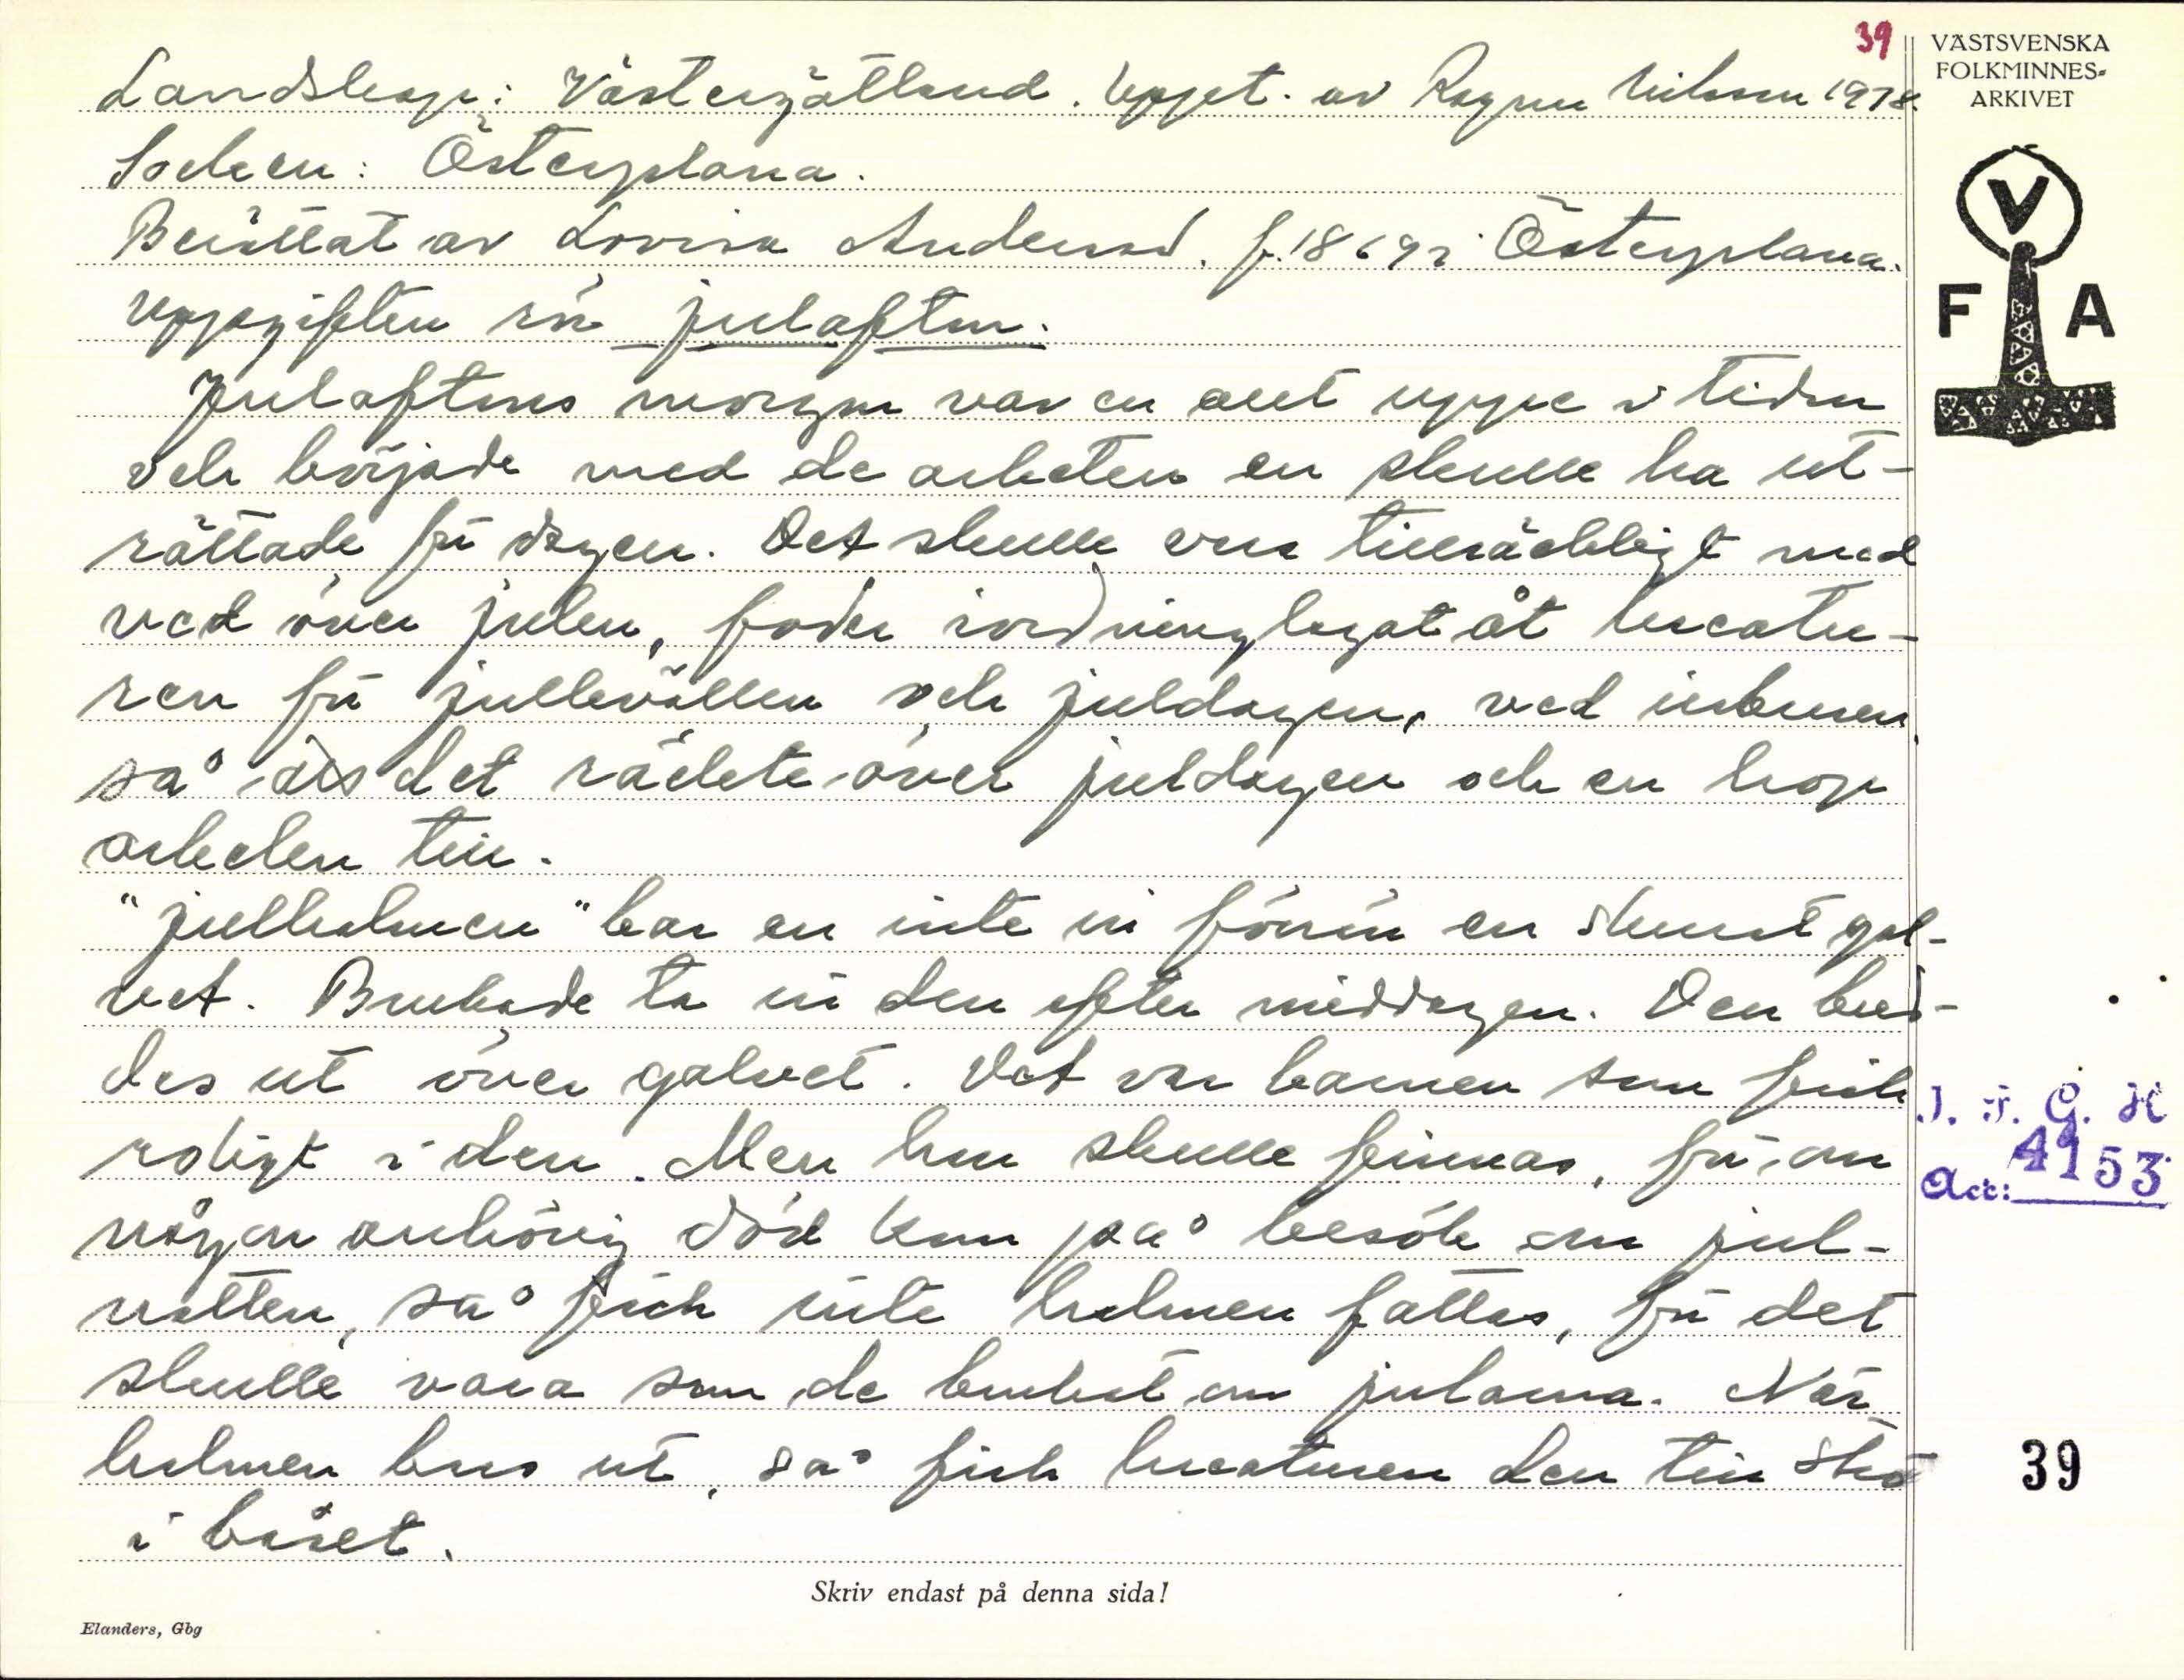 39
VÄSTSVENSKA
FOLKMINNES-
ARKIVET
Landskap: Västergötland. Uppt. av Ragnar Nilsson 1938.
Socken: Österplana.
Berättat av Lovisa Andersd. f. 1869 i Österplana.
Uppgiften rör julafton.
Julaftons morgon var en arit uppe i tiden
och började med de arbeten en skulle ha ut-
rättade för dagen. Det skulle vara tillräckligt med
ved över julen, foder iordninglagat åt kreatu-
ren för julkvällen och juldagen, ved inburen
så det räckte över juldagen och en hop
arbeten till.
"julhalmen" bar en inte in förrän en skurat gol-
vet. Brukade ta in den efter middagen. Den bred-
des ut över golvet. Det var barnen som fick
roligt i den. Men hon skulle finnas, för om
någon anhörig död kom på besök om jul-
natten, så fick inte halmen fattas, för det
skulle vara som de brukat om jularna. När
halmen bars ut, så fick kreaturen den till strö
i båset.
V
F A
I. F. G. H
Acc: 4153
39
Skriv endast på denna sida!
Elanders, Gbg